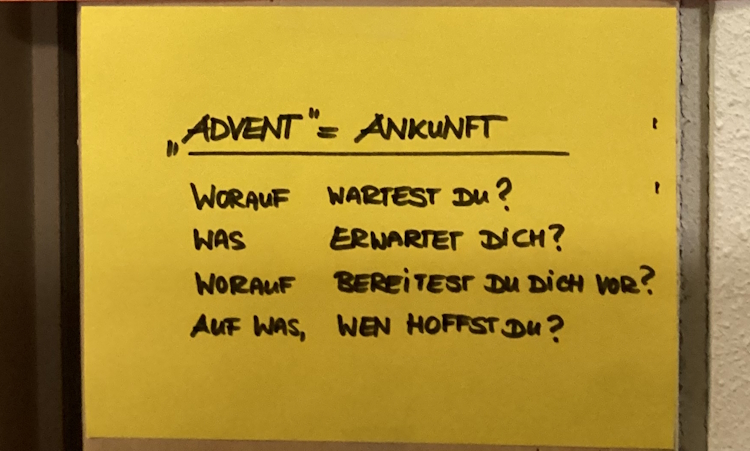 „ADVENT" = ANKUNFT
WORAUF WARTEST DU?
WAS ERWARTET DICH?
WORAUF BEREITEST DU DICH VOR?
AUF WAS, WEN HOFFST DU?